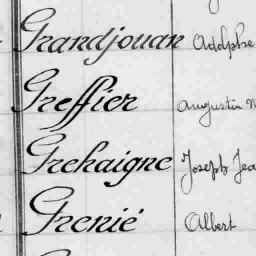 Grandjouan Adolphe
Greffier Augustin
Grehaigne Joseph Jea
Grenié Albert